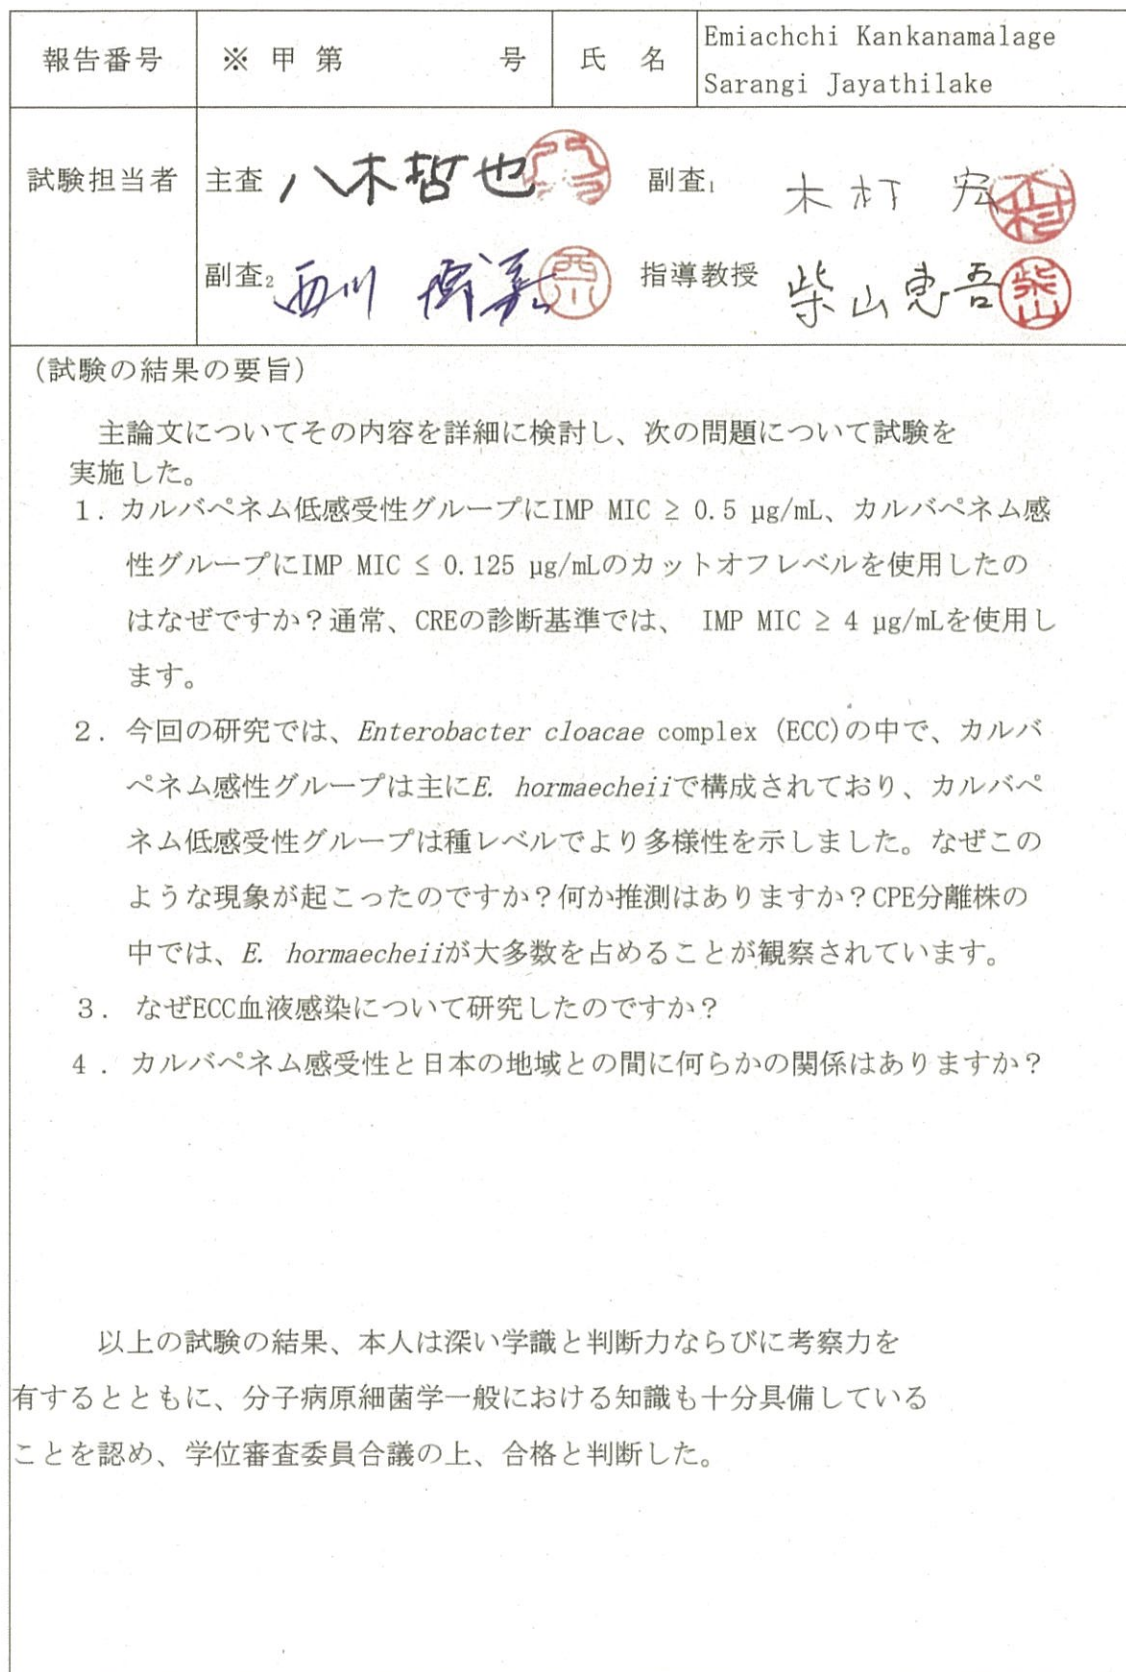 報告番号 ※ 甲 第 号 氏 名 Emiachchi Kankanamalage
Sarangi Jayathilake
試験担当者 主査 八木哲也 副査1 木村 宏
副査2 西川 指導教授 柴山恵吾
(試験の結果の要旨)
主論文についてその内容を詳細に検討し、次の問題について試験を
実施した。
1. カルバペネム低感受性グループにIMP MIC ≥ 0.5 µg/mL、カルバペネム感
性グループにIMP MIC ≤ 0.125 µg/mLのカットオフレベルを使用したの
はなぜですか？通常、CREの診断基準では、 IMP MIC ≥ 4 µg/mLを使用し
ます。
2. 今回の研究では、Enterobacter cloacae complex (ECC)の中で、カルバ
ペネム感性グループは主にE. hormaecheiiで構成されており、カルバペ
ネム低感受性グループは種レベルでより多様性を示しました。なぜこの
ような現象が起こったのですか？何か推測はありますか？CPE分離株の
中では、E. hormaecheiiが大多数を占めることが観察されています。
3. なぜECC血液感染について研究したのですか？
4. カルバペネム感受性と日本の地域との間に何らかの関係はありますか？
以上の試験の結果、本人は深い学識と判断力ならびに考察力を
有するとともに、分子病原細菌学一般における知識も十分具備している
ことを認め、学位審査委員合議の上、合格と判断した。